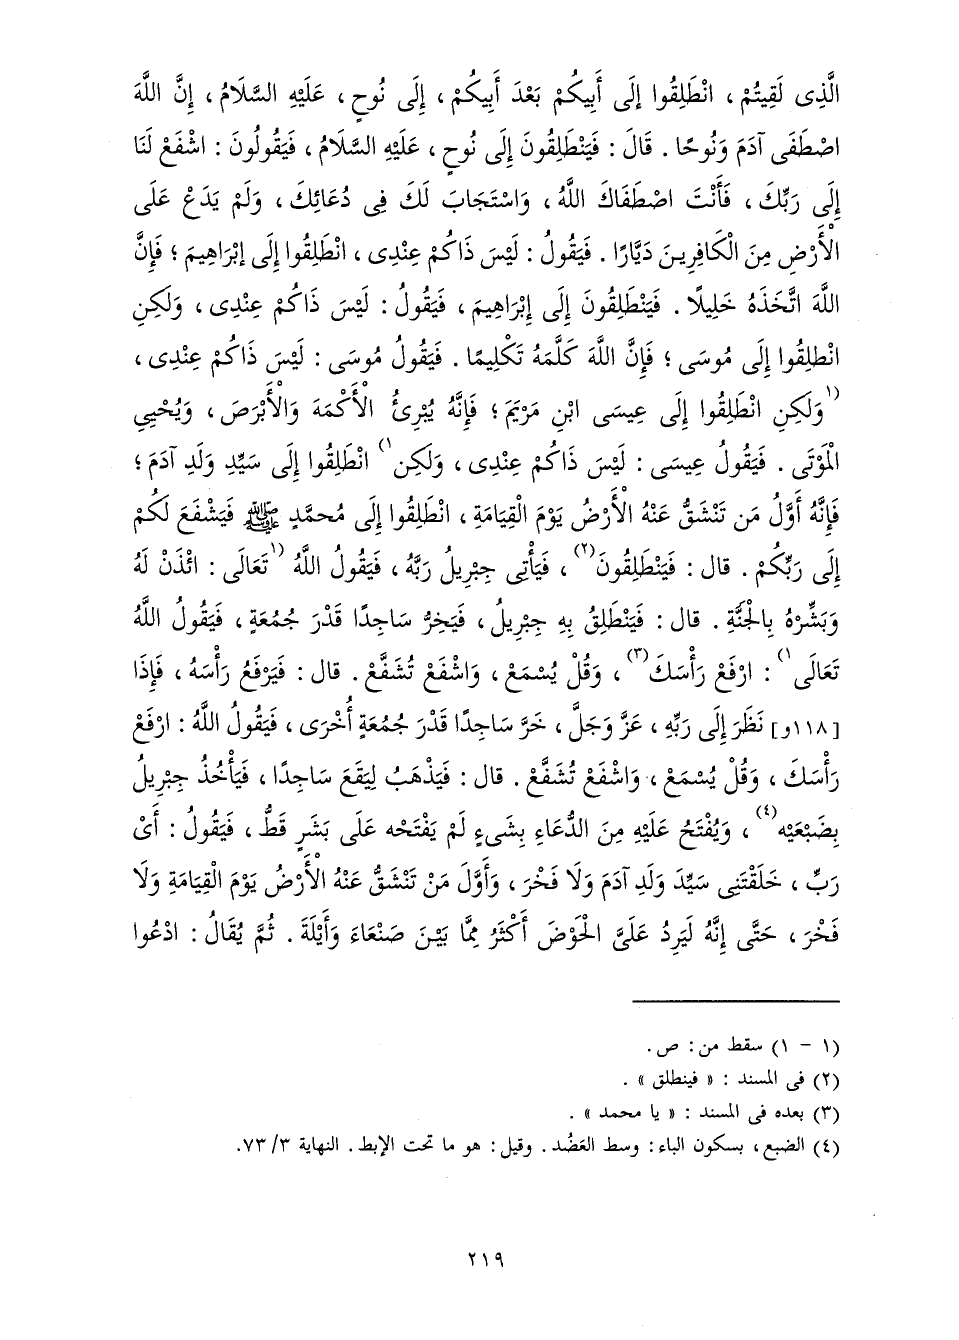 الَّذِى لَقِيتُمْ ، انْطَلِقُوا إلَى أَبِيكُمْ بَعْدَ أَبِيكُمْ ، إِلَى نُوحٍ ، عَلَيْهِ السَّلَامُ ، إِنَّ اللَّهَ
اصْطَفَى آدَمَ وَنُوحًا . قَالَ : فَيَنْطَلِقُونَ إِلَى نُوحٍ ، عَلَيْهِ السَّلَامُ ، فَيَقُولُونَ : اشْفَعْ لَنَا
إِلَى رَبِّكَ ، فَأَنْتَ اصْطَفَاكَ اللَّهُ ، وَاسْتَجَابَ لَكَ فِى دُعَائِكَ ، وَلَمْ يَدَعْ عَلَى
الْأَرْضِ مِنَ الْكَافِرِينَ دَيَّارًا . فَيَقُولُ : لَيْسَ ذَاكُمْ عِنْدِى ، انْطَلِقُوا إِلَى إبْرَاهِيمَ ؛ فَإِنَّ
اللَّهَ اتَّخَذَهُ خَلِيلًا . فَيَنْطَلِقُونَ إِلَى إِبْرَاهِيمَ ، فَيَقُولُ : لَيْسَ ذَاكُمْ عِنْدِى ، وَلَكِنِ
انْطلِقُوا إِلَى مُوسَى ؛ فَإِنَّ اللَّهَ كَلَّمَهُ تَكْلِيمًا . فَيَقُولُ مُوسَى : لَيْسَ ذَاكُمْ عِنْدِى ،
(١وَلَكِنِ انْطَلِقُوا إِلَى عِيسَى ابْنِ مَرْيَمَ ؛ فَإِنَّهُ يُبْرِئُ الْأَكْمَهَ وَالْأَبْرَصَ ، وَيُحْيِي
الْمَوْتَى . فَيَقُولُ عِيسَى : لَيْسَ ذَاكُمْ عِنْدِى ، وَلَكِنِ١) انْطَلِقُوا إِلَى سَيِّدِ وَلَدِ آدَمَ ؛
فَإِنَّهُ أَوَّلُ مَن تَنْشَقُّ عَنْهُ الْأَرْضُ يَوْمَ الْقِيَامَةِ ، انْطَلِقُوا إِلَى مُحمَّدٍ ﷺ فَيَشْفَعَ لَكُمْ
إِلَى رَبِّكُمْ . قال : فَيَنْطَلِقُونَ(٢) ، فَيَأْتِى جِبْرِيلُ رَبَّهُ ، فَيَقُولُ اللَّهُ (١تَعَالَى : ائْذَنْ لَهُ
وَبَشِّرْهُ بِالْجَنَّةِ . قال : فَيَنْطَلِقُ بِهِ جِبْرِيلُ ، فَيَخِرُّ سَاجِدًا قَدْرَ جُمُعَةٍ ، فَيَقُولُ اللَّهُ
تَعَالَى١) : ارْفَعْ رَأْسَكَ(٣) ، وَقُلْ يُسْمَعْ ، وَاشْفَعْ تُشَفَّعْ . قال : فَيَرْفَعُ رَأْسَهُ ، فَإِذَا
[١١٨و] نَظَرَ إِلَى رَبِّهِ ، عَزَّ وَجَلَّ ، خَرَّ سَاجِدًا قَدْرَ جُمُعَةٍ أُخْرَى ، فَيَقُولُ اللَّهُ : ارْفَعْ
رَأْسَكَ ، وَقُلْ يُسْمَعْ ، وَاشْفَعْ تُشَفَّعْ . قال : فَيَذْهَبُ لِيَقَعَ سَاجِدًا ، فَيَأْخُذُ جِبْرِيلُ
بِضَبْعَيْهِ(٤) ، وَيُفْتَحُ عَلَيْهِ مِنَ الدُّعَاءِ بِشَىءٍ لَمْ يَفْتَحْه عَلَى بَشَرٍ قَطُّ ، فَيَقُولُ : أَىْ
رَبِّ ، خَلَقْتَنِى سَيِّدَ وَلَدِ آدَمَ وَلَا فَخْرَ ، وَأَوَّلَ مَنْ تَنْشَقُّ عَنْهُ الْأَرْضُ يَوْمَ الْقِيَامَةِ وَلَا
فَخْرَ ، حَتَّى إِنَّهُ لَيَرِدُ عَلَىَّ الْحَوْضَ أَكْثَرُ مِمَّا بَيْنَ صَنْعَاءَ وَأَيْلَةَ . ثُمَّ يُقَالُ : ادْعُوا
(١ - ١) سقط من : ص .
(٢) فى المسند : « فينطلق » .
(٣) بعده فى المسند : « يا محمد » .
(٤) الضبع ، بسكون الباء : وسط العَضُد . وقيل : هو ما تحت الإبط . النهاية ٣/ ٧٣.
٢١٩